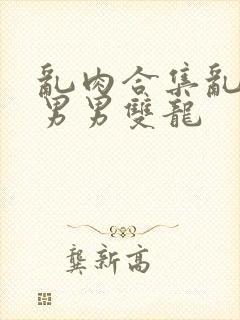 亂肉合集亂
男男雙龍
龔新高